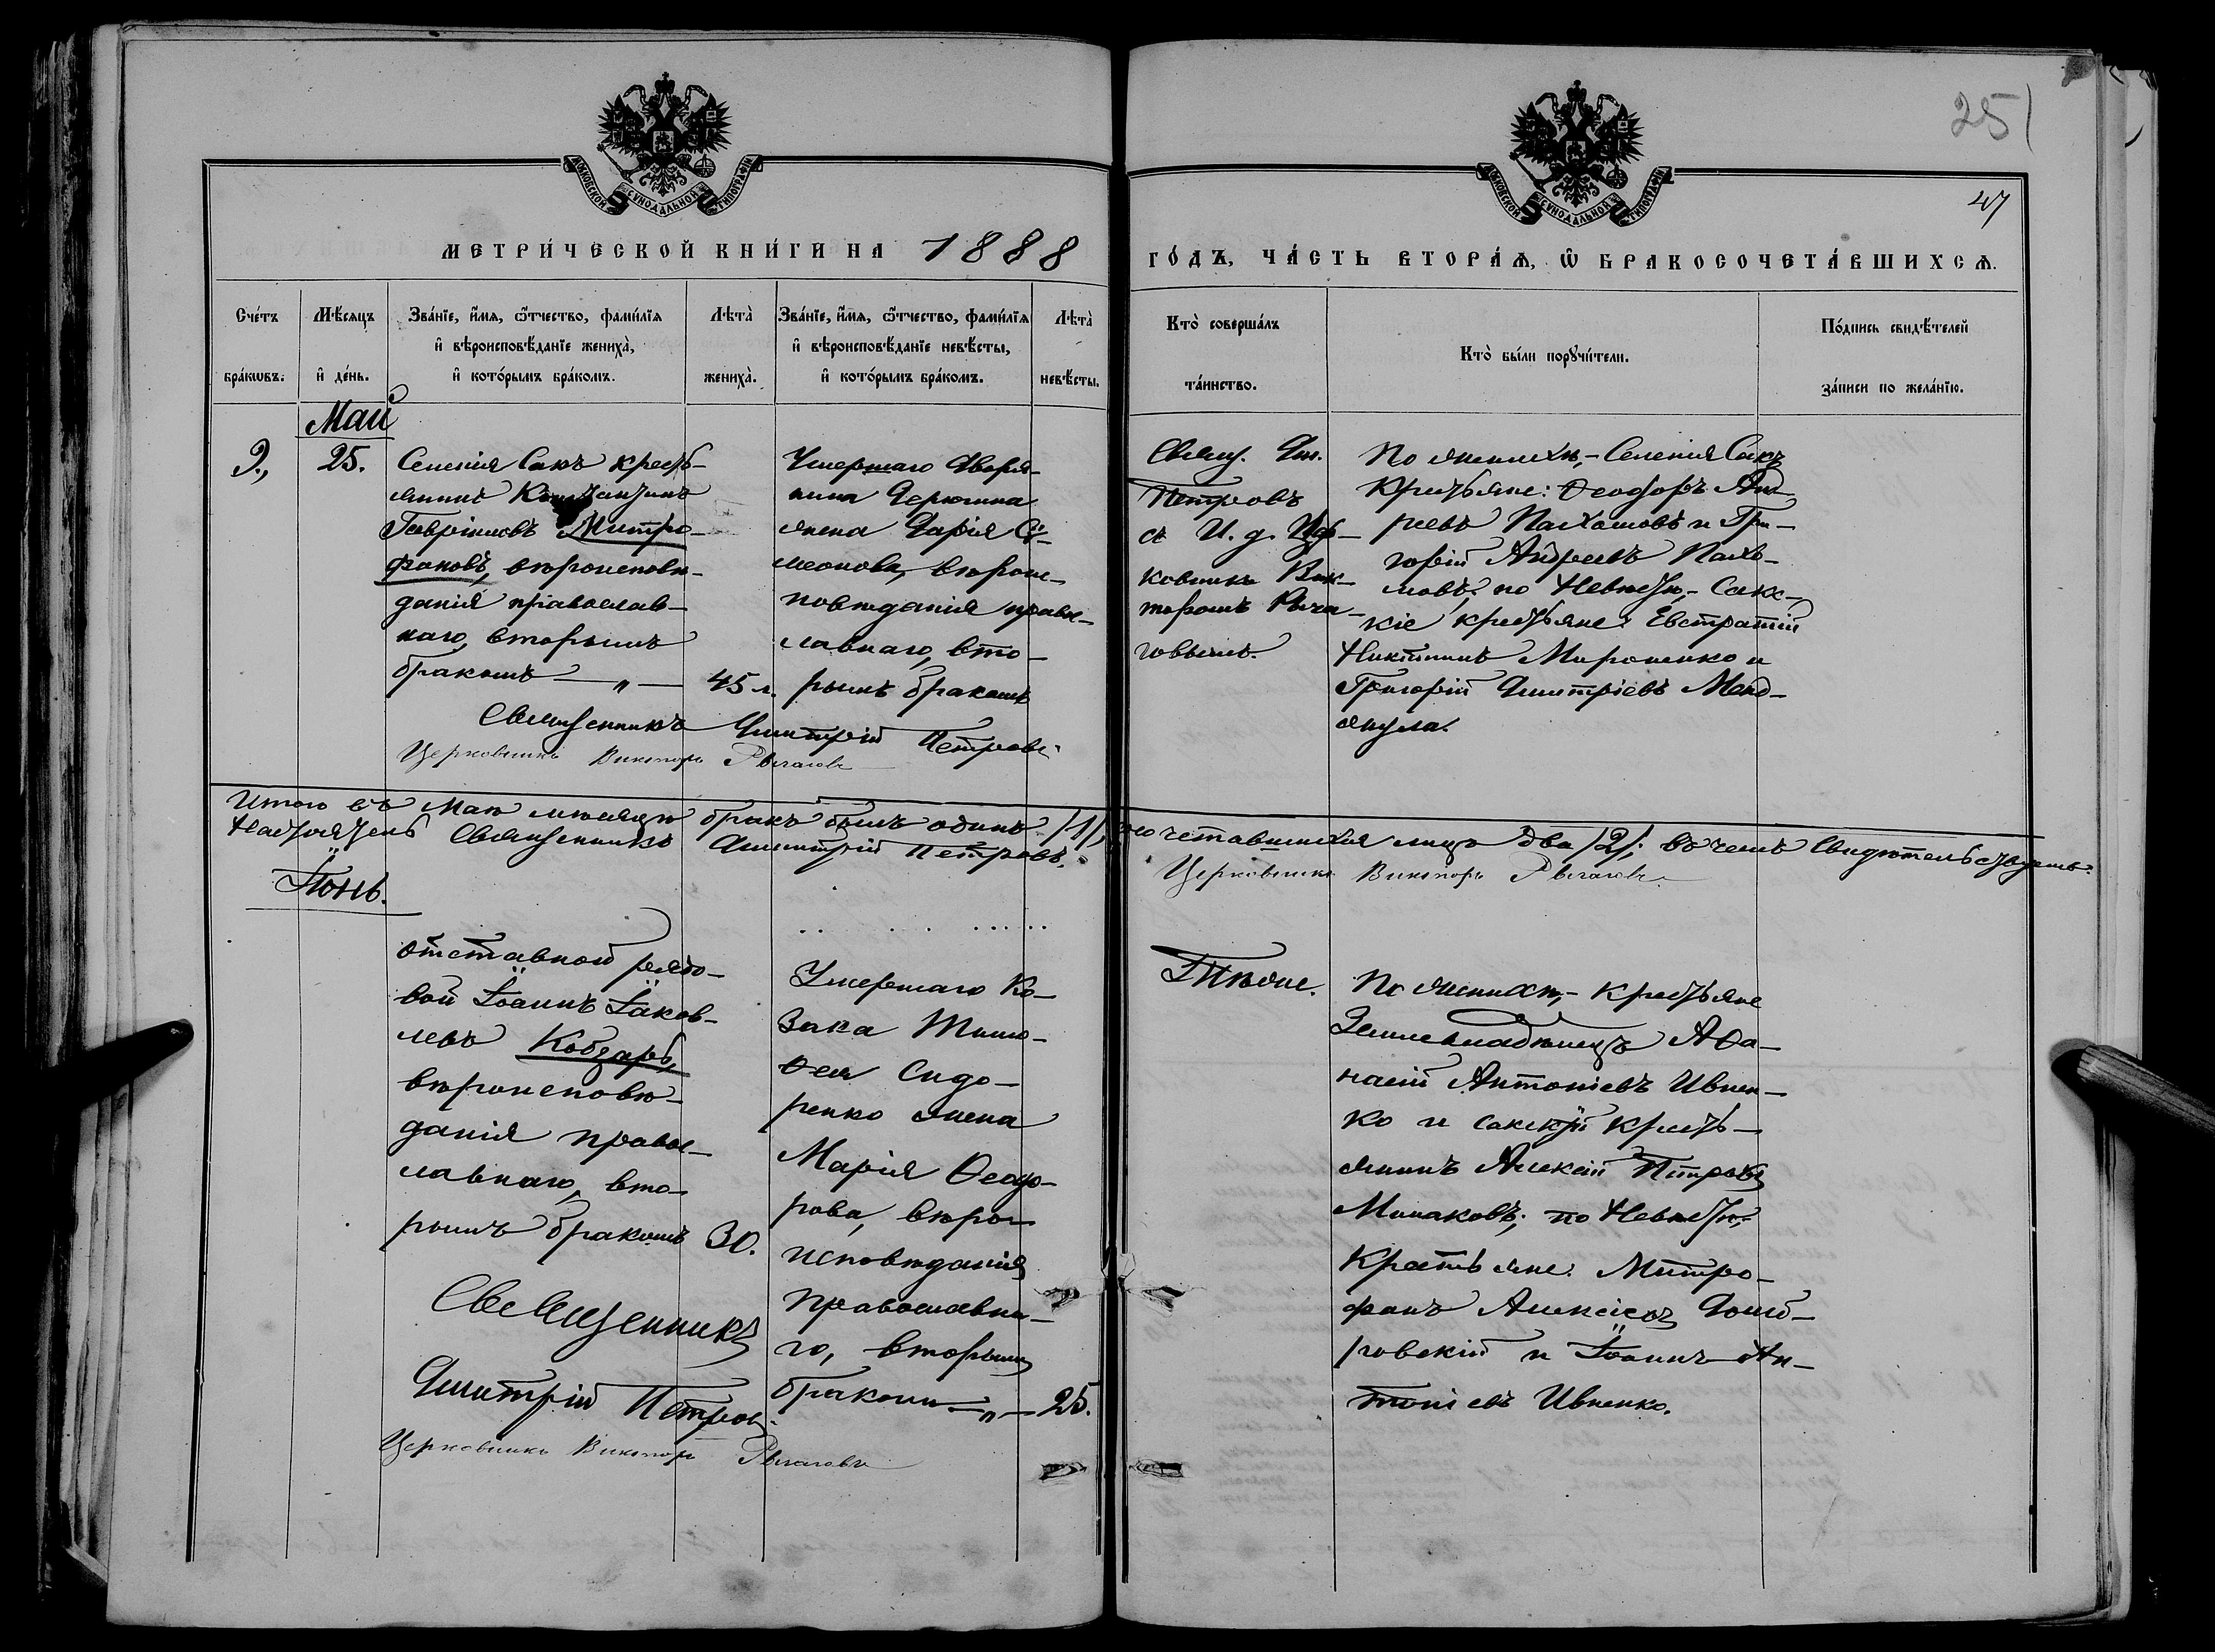 251
47
МОСКОВСКОЙ СѴНОДАЛЬНОЙ ТИПОГРАФІИ
МОСКОВСКОЙ СѴНОДАЛЬНОЙ ТИПОГРАФІИ
МЕТРИ́ЧЕСКОЙ КНИ́ГИ НА 1888
ГО́ДЪ, ЧА́СТЬ ВТОРА́Ѧ, Ѡ҆ БРАКОСОЧЕТА́ВШИХСѦ.
Сче́тъ бра́кѡвъ.
Мѣ́сяцъ и҆ де́нь.
Зва́нїе, и҆́мѧ, ѻ҆́тчество, фами́лїѧ
и҆ вѣроисповѣ́данїе жениха̀,
и҆ кото́рымъ бра́комъ.
Лѣта̀ жениха̀.
Зва́нїе, и҆́мѧ, ѻ҆́тчество, фами́лїѧ
и҆ вѣроисповѣ́данїе невѣ́сты,
и҆ кото́рымъ бра́комъ.
Лѣта̀ невѣ́сты.
Кто̀ соверша́лъ та́инство.
Кто̀ бы́ли порꙋчи́тели.
По́дпись свидѣ́телей за́писи по жела́нїю.
Май
9., 25.
Селенія Сакъ кресть-
янинъ Константинъ
Гавріиловъ Митро-
фановъ, вѣроисповѣ-
данія православ-
наго, вторымъ
бракомъ — „ — 45 л.
Умершаго Дворя-
нина
жена Дарія Си-
меонова, вѣроис-
повѣданія право-
славнаго, вто-
рымъ бракомъ
Свящ. Дим.
Петровъ
съ И. д. Цер-
ковника Вик-
торомъ Рыча-
говымъ.
По женихѣ,- Селенія Сакъ
Крестьяне: Ѳеодоръ Анд
реевъ Пахомовъ и Гри-
горій Андреевъ Пахо-
мовъ; по Невѣстѣ,- Сакс-
кіе крестьяне: Евстратій
Никитинъ Мироненко и
Григорій Димитріевъ
Священникъ Димитрій Петровъ.
Церковникъ Викторъ Рычаговъ
Итого въ Маѣ мѣсяцѣ бракъ былъ одинъ /1/, сочетавшихся лицъ два /2/; въ чемъ Свидѣтельствуемъ:
Настоятель Священникъ Димитрій Петровъ.
Церковникъ Викторъ Рычаговъ.
Іюнь.
Отставной рядо-
вой Іоаннъ Іаков-
левъ Кобзарь,
вѣроисповѣ-
данія право-
славнаго, вто-
рымъ бракомъ 30.
Умершаго Ко-
зака Тимо-
ѳея Сидо-
ренко жена
Марія Ѳеодо-
рова, вѣро-
исповѣданія
православна-
го, вторымъ
бракомъ — „ — 25.
Тѣже.
По женихѣ,- крестьяне
Землевладѣлецъ Аѳа-
насій Антоніевъ Ивнен-
ко и сакскій кресть-
янинъ Алексій Петровъ
Минаковъ; по Невѣстѣ,-
Крестьяне: Митро-
фанъ Алексіевъ Домб-
ровскій и Іоаннъ Ан-
тоніевъ Ивненко.
Священникъ
Димитрій Петровъ.
Церковникъ Викторъ Рычаговъ